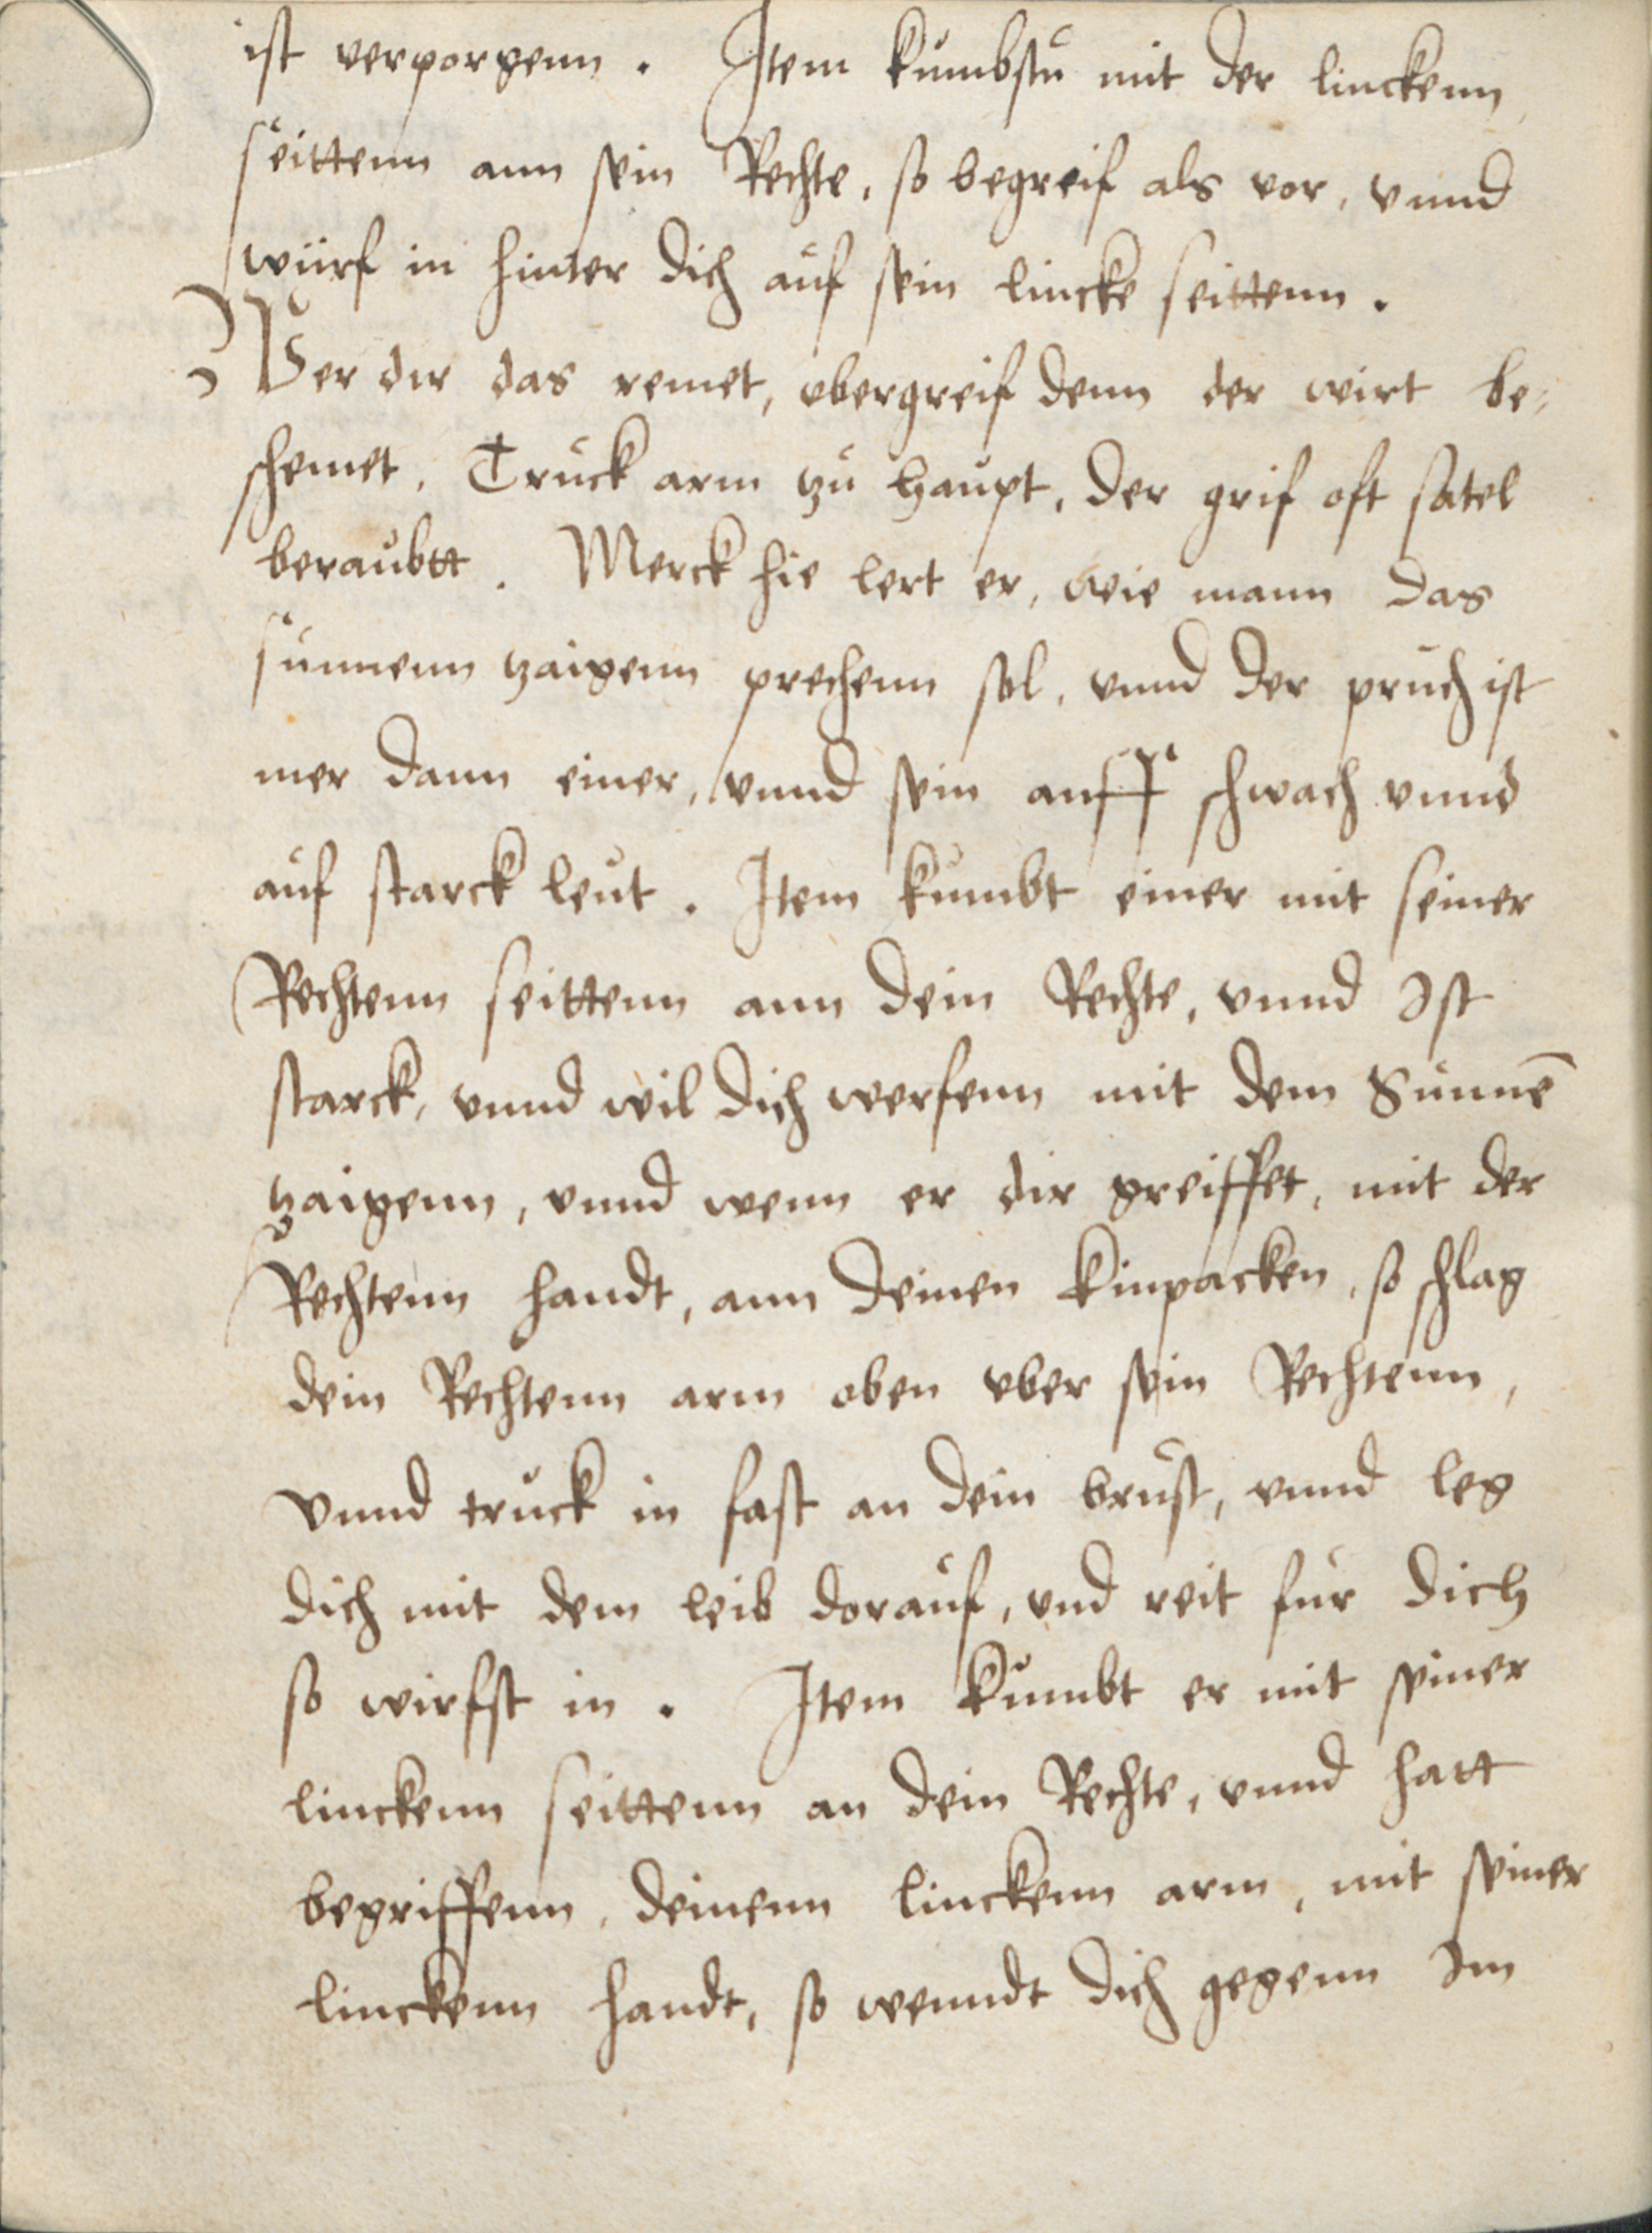 ist verporgenn. Item kumbstu mit der linckenn
seittenn ann sein Rechte, so begreif als vor, vnnd
würf in hinter dich auf sein lincke seittenn.
Wer dir das remet, vbergreif denn der wirt be-
schemet, Truck arm zu haupt, der grif oft satel
beraubtt. Merck hie lert er, wie mann das
sunnenn zaigenn prechenn sol, vnnd der pruch ist
mer dann einer, vnnd sein auff schwach vnnd
auf starck leut. Item kumbt einer mit seiner
Rechtenn seittenn ann dein Rechte, vnnd Ist
starck, vnnd wil dich werfenn mit dem Sunnē
zaigenn, vnnd wenn er dir greiffet, mit der
Rechtenn handt, ann deinen kinpacken, so schlag
dein Rechtenn arm oben vber sein Rechtenn,
vnnd truck in fast an dein brust, vnnd leg
dich mit dem leib dorauf, vnd reit fur dich
so wirfst in. Item kumbt er mit seiner
linckenn seittenn an dein Rechte, vnnd hatt
begriffenn, deinenn linckenn arm, mit seiner
linckenn handt, so wenndt dich gegenn Im